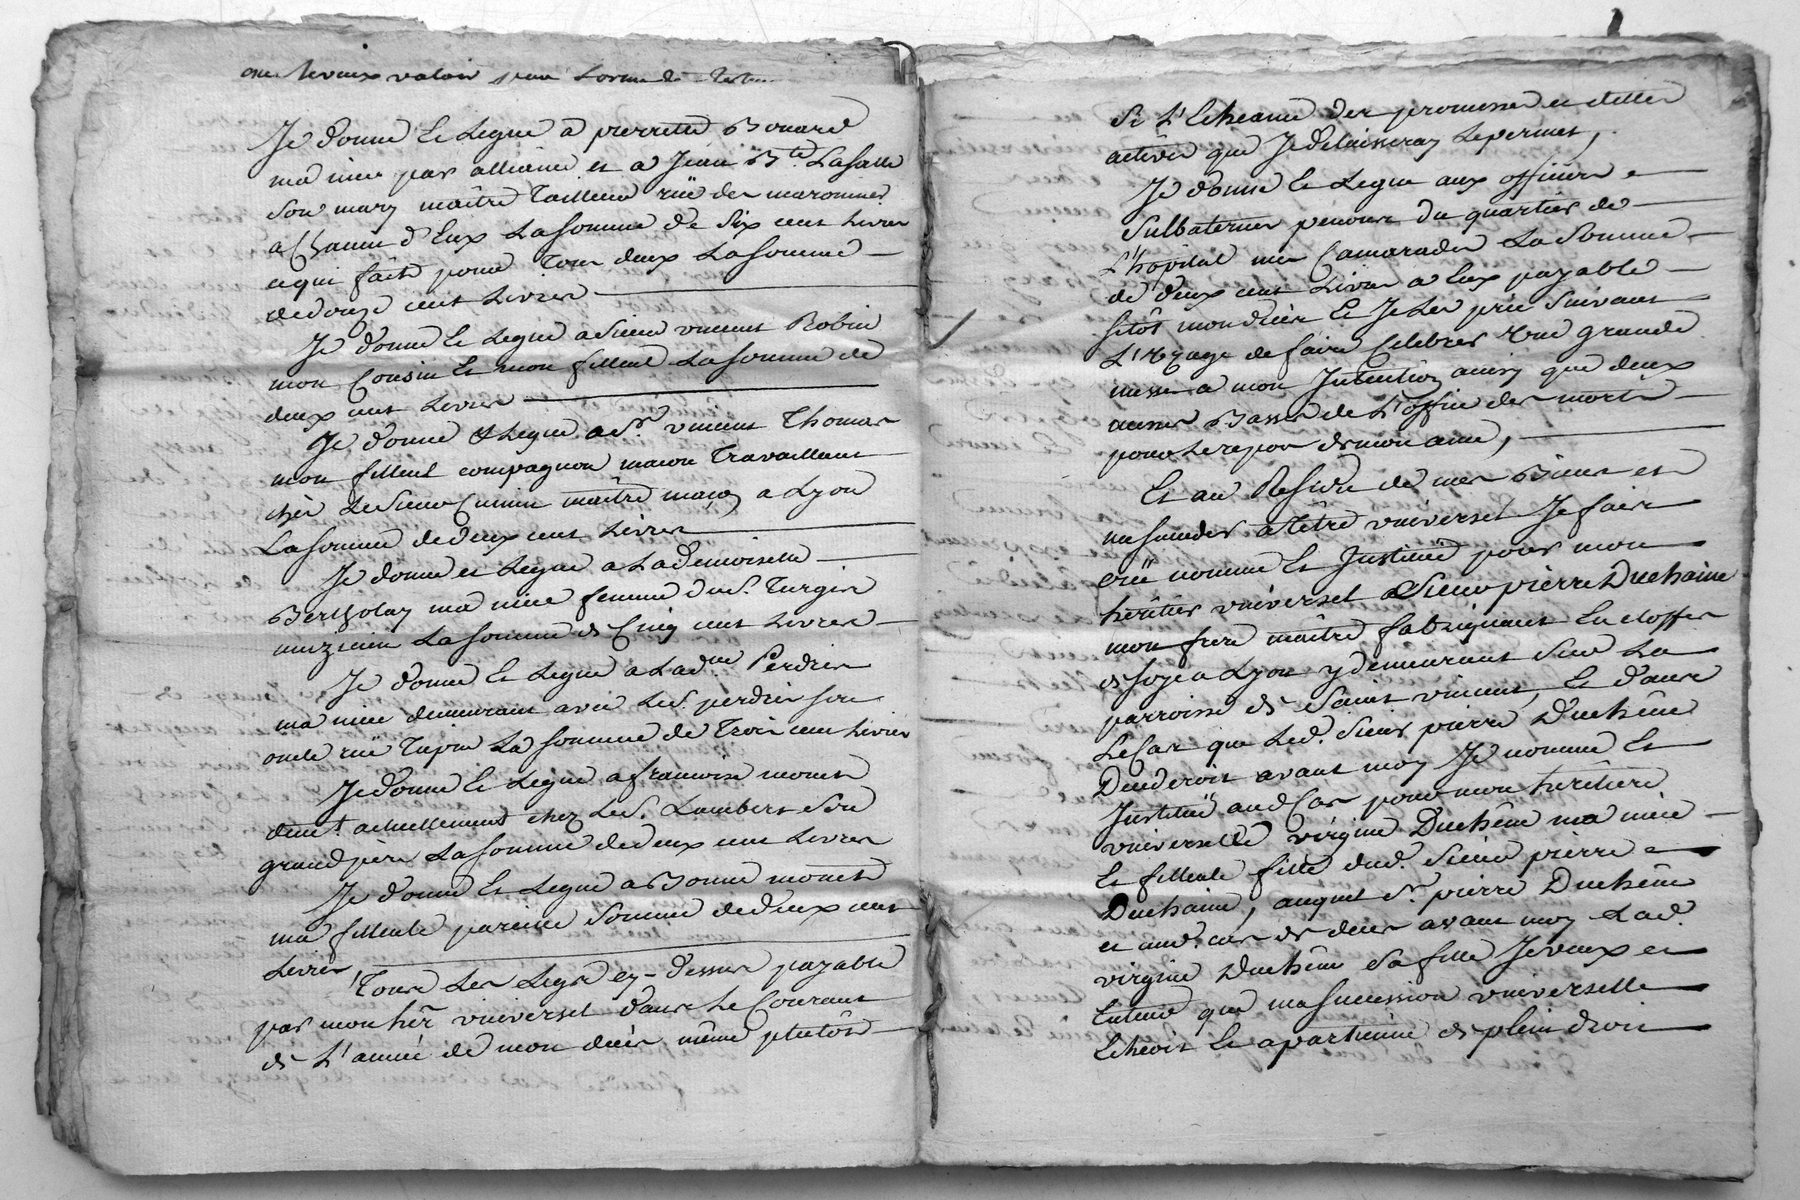 Je veux valoir pour
Je donne Et Legue a pierrette Bouard
ma niece par alliance et a Jean Bte. Lasalle
son mary maître Tailleur rüe des maronniers
a Chacun d'Eux La somme de Six cent Livres
ce qui fait pour Tous deux La somme
de douze cent Livres
Je donne Et Legue a Sieur vincent Robin
mon Cousin Et mon filleul La somme de
deux cent Livres
Je donne & Legue a Sr. vincent Thomas
mon filleul compagnon macon Travaillant
chés Le Sieur Cunin maître maçon a Lyon
La somme de deux cent Livres
Je donne et Legue a La demoiselle
Bertholay ma niece femme du S. Turgis
muzicien La somme de Cinq cent Livres
Je donne Et Legue a Lad.lle Perdrix
ma niece demeurant avec Le S. perdrix son
oncle rüe Tupin La somme de Trois cent Livres
Je donne Et Legue a francoise monet
demt. actuellement chez Le S. Lambert son
grand père, La somme de deux cent Livres
Je donne Et Legue a Bonne monet
ma filleule pareille Somme de deux cent
Livres,
Tous Les Legs cy-dessus payable
par mon hér. vniversel dans Le Courant
de L'année de mon decès même plutôt
Si L'Echeance des promesses et dettes
actives que Je delaisseray Le permet,
Je donne Et Legue aux officiers
Subalternes penons du quartier de
L'hôpital mes Camarades La Somme
de deux cent Livres a Eux payable
sitôt mon decès Et Je Les prie Suivant
L'vzage de faire Celebrer vne grande
messe a mon Intention ainsy que deux
messes Basses de L'office des morts
pour Le repos de mon ame,
Et au Residu de mes Biens et
mes immeubles a Titre vniversel Je fais
crée nomme Et Institue pour mon
hèritier vniversel Sieur pierre Duchaine
mon frere maître fabriquant En étoffes
de soye a Lyon y demeurant Sur La
parroisse de Saint vincent, Et dans
Le Cas que Led. Sieur pierre Duchêne
Decederoit avant moy Je nomme Et
Institue aud. Cas pour mon hèritiere
vniverselle virginie Duchêne ma niece
Et filleule fille dud. Sieur pierre
Duchaine, auquel Sr. pierre Duchêne
et aud. cas de deces avant moy Lad.
virginie Duchêne Sa fille Je veux et
Entend que ma Succession vniverselle
Echeoit Et apartienne de plein droit